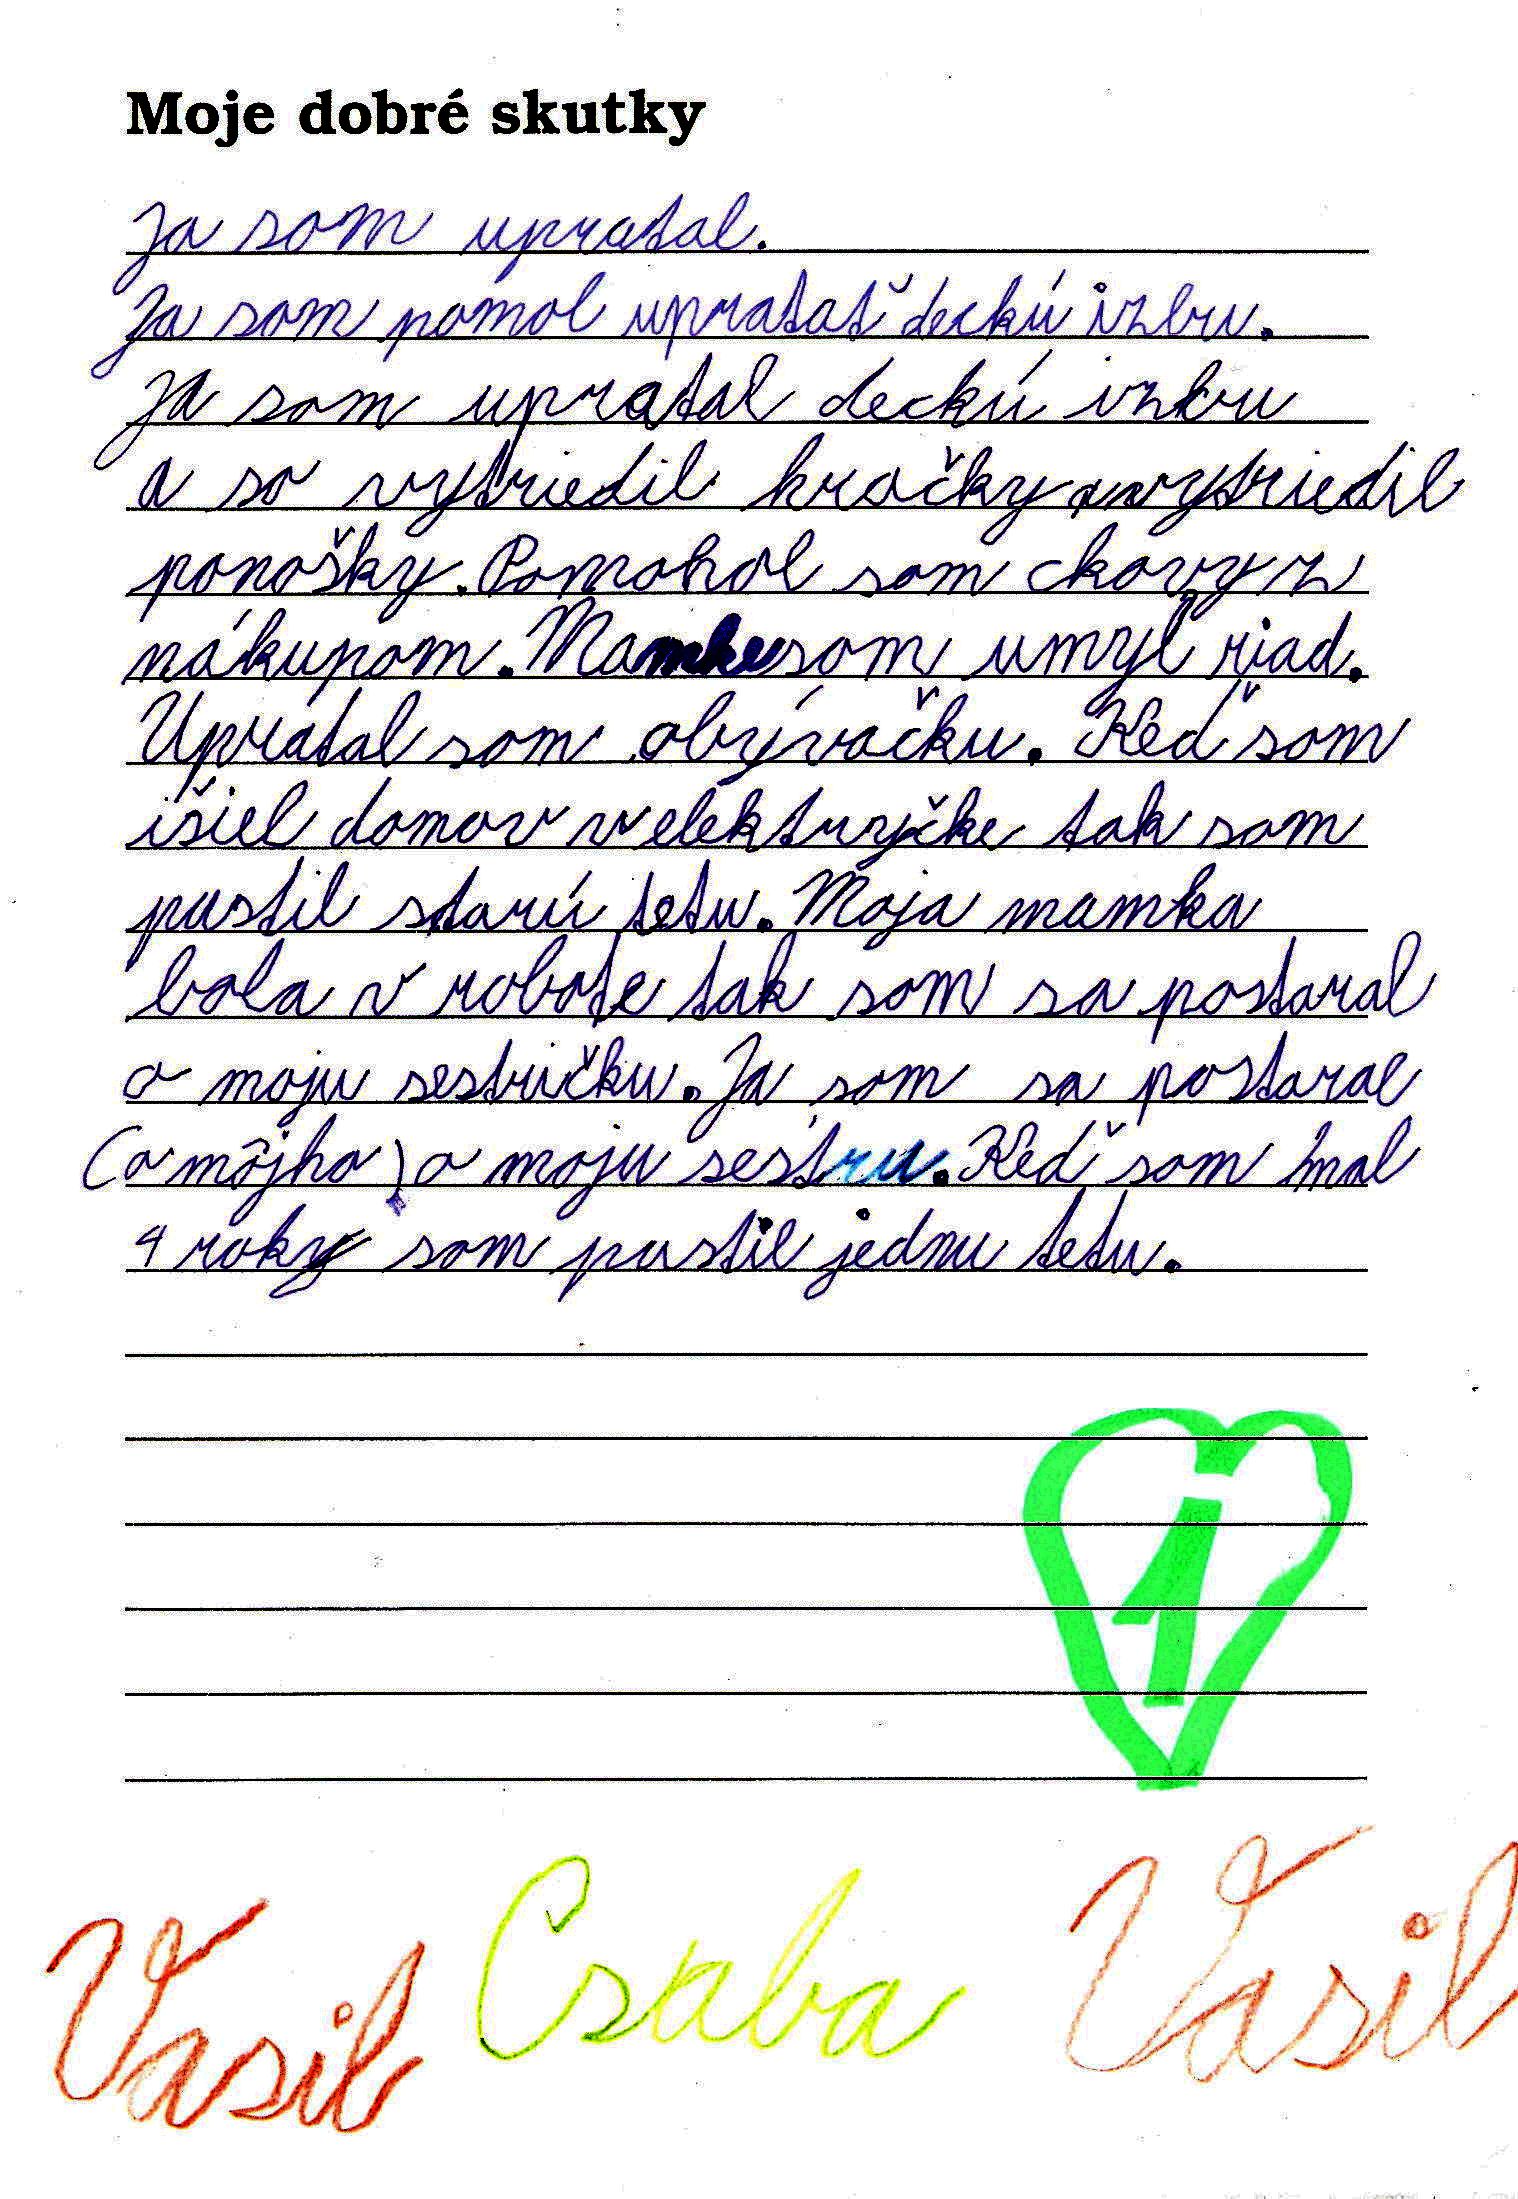 Moje dobré skutky
Ja som upratal.
Ja som pomol upratať deckú izbu.
Ja som upratal deckú izbu
a so vytriedil hračky vytriedil
ponošky. Pomohol som ckovy z
nákupom. Mamke som umyl riad.
Upratal som obývačku. Keď som
išiel domov v elektryčke tak som
pustil starú tetu. Moja mamka
bola v robote tak som sa postaral
o moju sestričku. Ja som sa postaral
(o môjho) o moju sestru. Keď som mal
4 roky som pustil jednu tetu.
1
Vasil Csaba Vasil